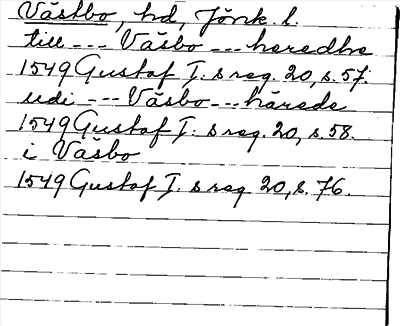 Västbo, hd, Jönk. l.
till --- Väsbo --- heredhe
1549 Gustaf I:s reg. 20, s. 57.
udi --- Väsbo --- härede
1549 Gustaf I:s reg. 20, s. 58.
i Vasbo
1549 Gustaf I:s reg 20, s. 76.